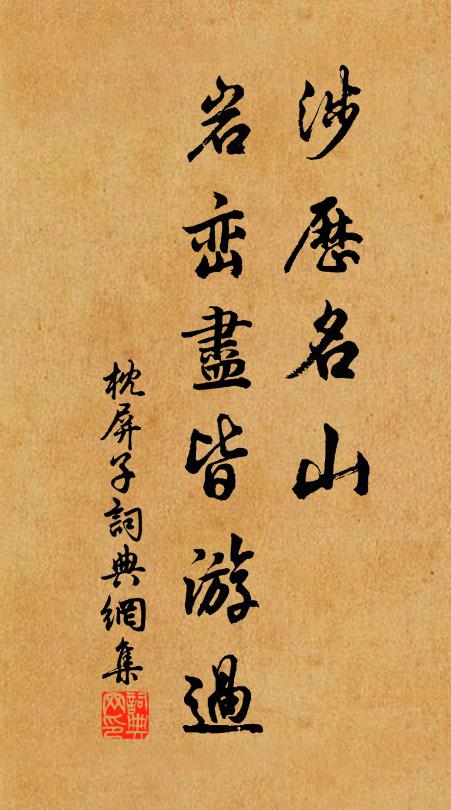 涉歷名山
岩峦盡皆游過
枕屏子詞典網集
詞典网印